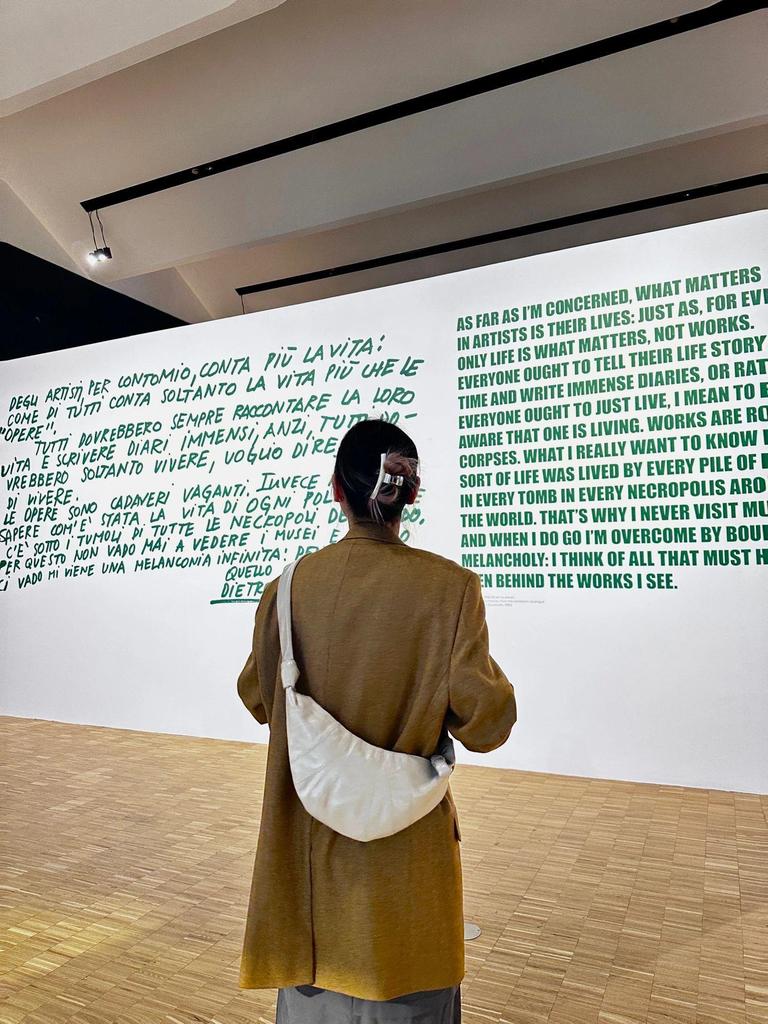 DEGLI ARTISTI, PER CONTO MIO, CONTA PIÙ LA VITA:
COME DI TUTTI CONTA SOLTANTO LA VITA PIÙ CHE LE
"OPERE".
TUTTI DOVREBBERO SEMPRE RACCONTARE LA LORO
VITA E SCRIVERE DIARI IMMENSI, ANZI, TUTTI DO-
VREBBERO SOLTANTO VIVERE, VOGLIO DIRE
DI VIVERE.
LE OPERE SONO CADAVERI VAGANTI. INVECE
SAPERE COM'È STATA LA VITA DI OGNI
C'È SOTTO I TUMOLI DI TUTTE LE NECROPOLI
PER QUESTO NON VADO MAI A VEDERE I MUSEI E
CI VADO MI VIENE UNA MELANCONIA INFINITA:
QUELLO
AS FAR AS I'M CONCERNED, WHAT MATTERS
IN ARTISTS IS THEIR LIVES: JUST AS, FOR
ONLY LIFE IS WHAT MATTERS, NOT WORKS.
EVERYONE OUGHT TO TELL THEIR LIFE STORY
TIME AND WRITE IMMENSE DIARIES, OR
EVERYONE OUGHT TO JUST LIVE, I MEAN TO
AWARE THAT ONE IS LIVING. WORKS ARE
CORPSES. WHAT I REALLY WANT TO KNOW
SORT OF LIFE WAS LIVED BY EVERY PILE OF
IN EVERY TOMB IN EVERY NECROPOLIS
THE WORLD. THAT'S WHY I NEVER VISIT
AND WHEN I DO GO I'M OVERCOME BY
MELANCHOLY: I THINK OF ALL THAT MUST
BEHIND THE WORKS I SEE.